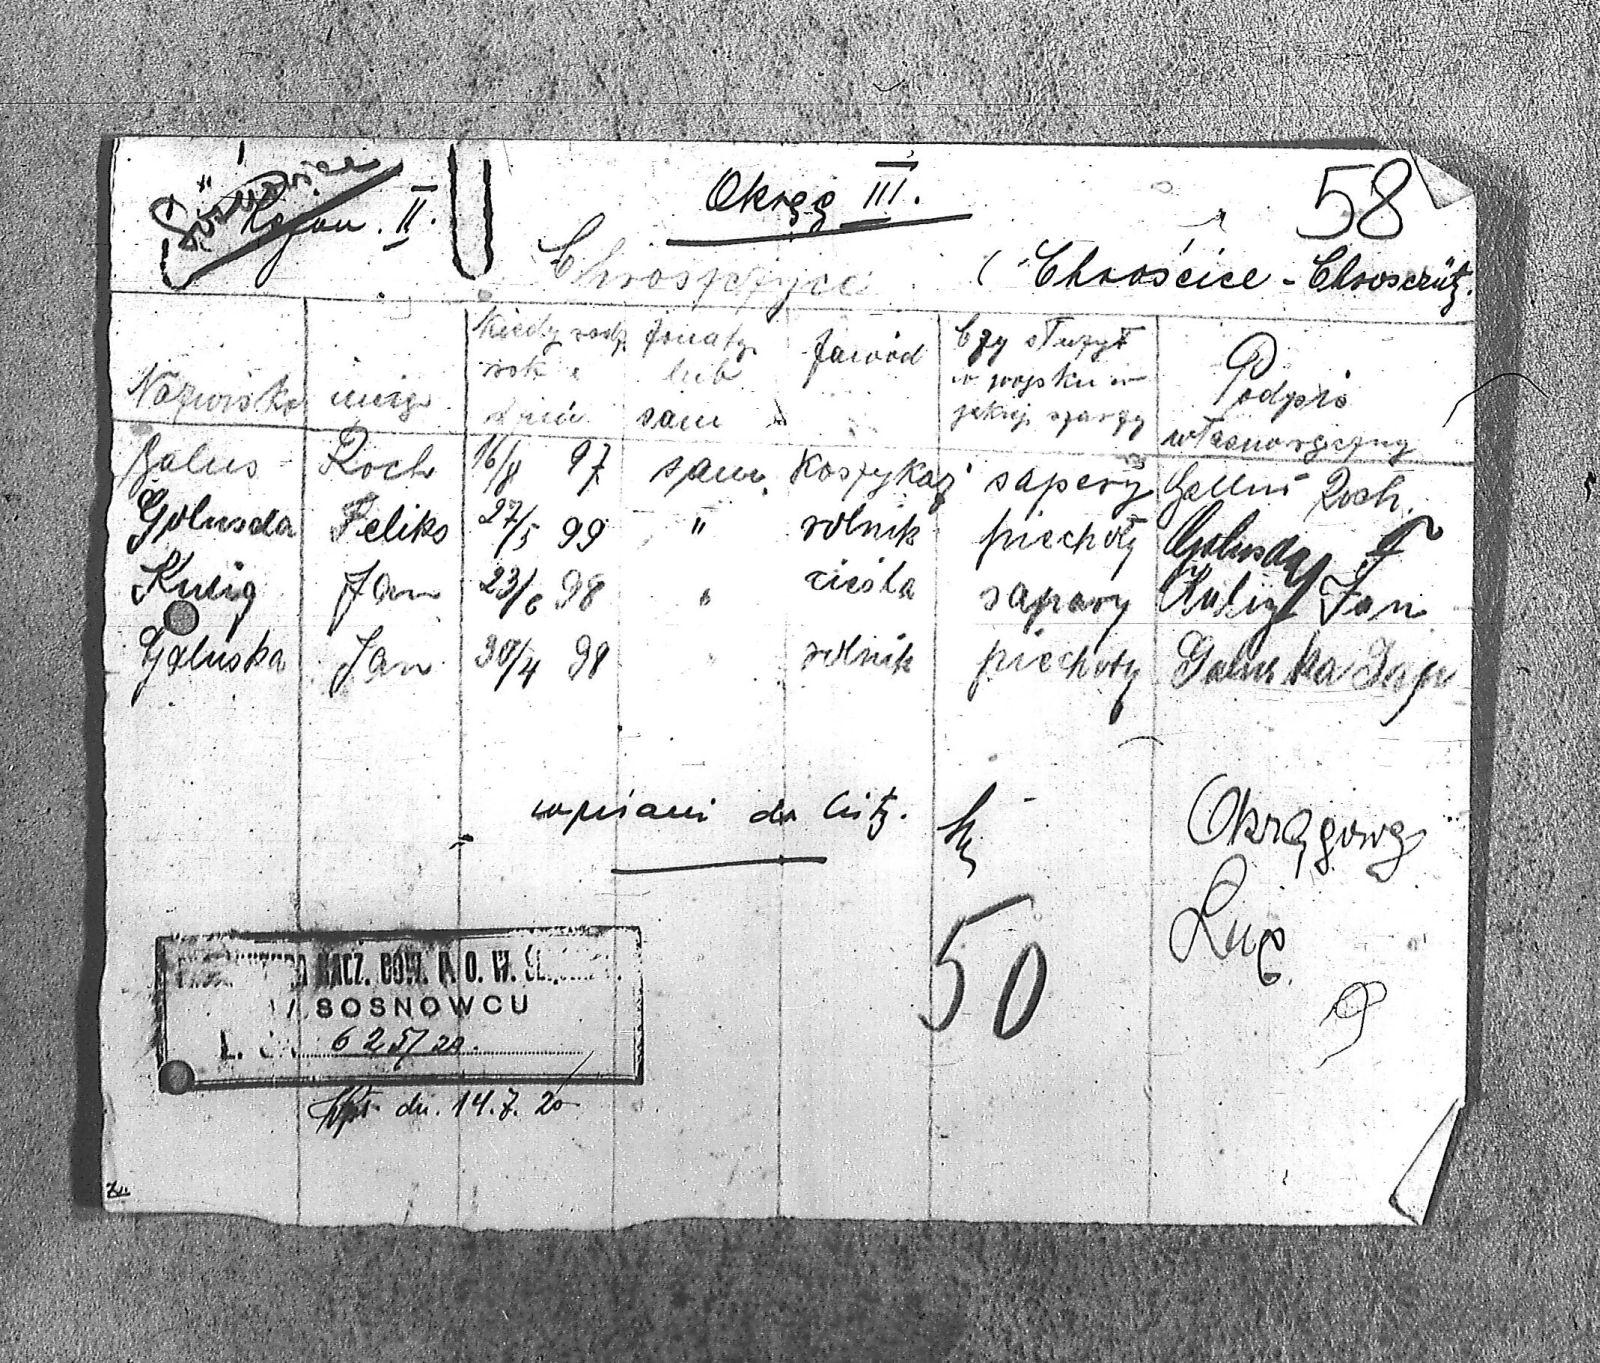 Sosnowice
Rejon II.
Okręg III.
58
Chrospczyce
(Chrościce - Chrosczütz.
Nazwisko imię Kiedy rodz. rok i dzień żonaty lub sam Zawód Czy służył w wojsku w jakiej szarży Podpis własnoręczny
Galus Roch 16/8 97 sam. Koszykarz sapery Gallus Roch.
Golusda Feliks 27/5 99 " rolnik piechoty Golusda F
Kulig Jan 23/6 98 " cieśla sapery Kulig Jan
Galuska Jan 30/4 98 " rolnik piechoty Galuska Jan
wpisani do listy.
Okręgowy
50
NACZ. DOW. P. O. W.
W SOSNOWCU
L. 625/20.
dn. 14.7.20